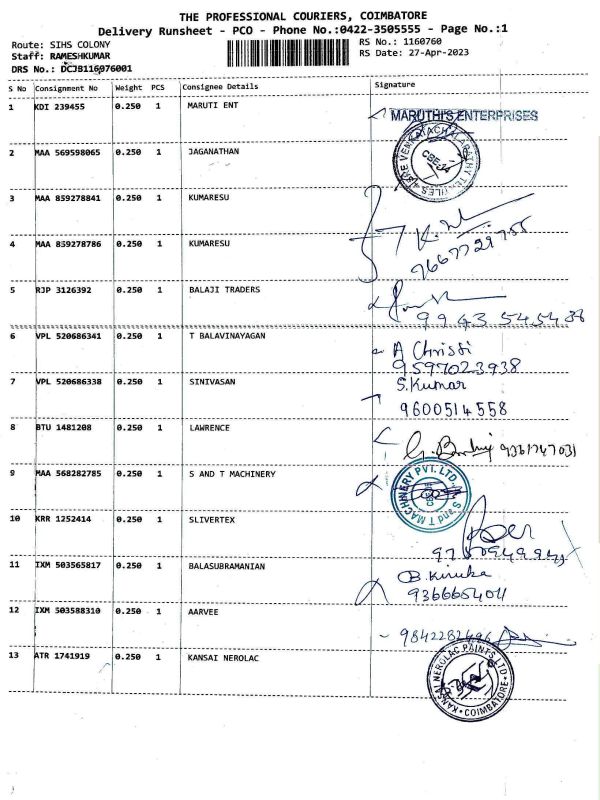 THE PROFESSIONAL COURIERS, COIMBATORE
Delivery Runsheet - PCO - Phone No.:0422-3505555 - Page No.:1
Route: SIHS COLONY RS No.: 1160760
Staff: RAMESHKUMAR RS Date: 27-Apr-2023
DRS No.: DCJB116076001
S No Consignment No Weight PCS Consignee Details Signature
1 KDI 239455 0.250 1 MARUTI ENT
MARUTHI'S ENTERPRISES
2 MAA 569598065 0.250 1 JAGANATHAN
CBE-34
3 MAA 859278841 0.250 1 KUMARESU
4 MAA 859278786 0.250 1 KUMARESU
7667729755
5 RJP 3126392 0.250 1 BALAJI TRADERS
99435454
6 VPL 520686341 0.250 1 T BALAVINAYAGAN
A Christi
9597023938
7 VPL 520686338 0.250 1 SINIVASAN
S.Kumar
9600514558
8 BTU 1481208 0.250 1 LAWRENCE
9361747031
9 MAA 568282785 0.250 1 S AND T MACHINERY
S and T MACHINERY PVT. LTD.
10 KRR 1252414 0.250 1 SLIVERTEX
11 IXM 503565817 0.250 1 BALASUBRAMANIAN
9366665404
12 IXM 503588310 0.250 1 AARVEE
13 ATR 1741919 0.250 1 KANSAI NEROLAC
KANSAI NEROLAC PAINTS LTD
COIMBATORE